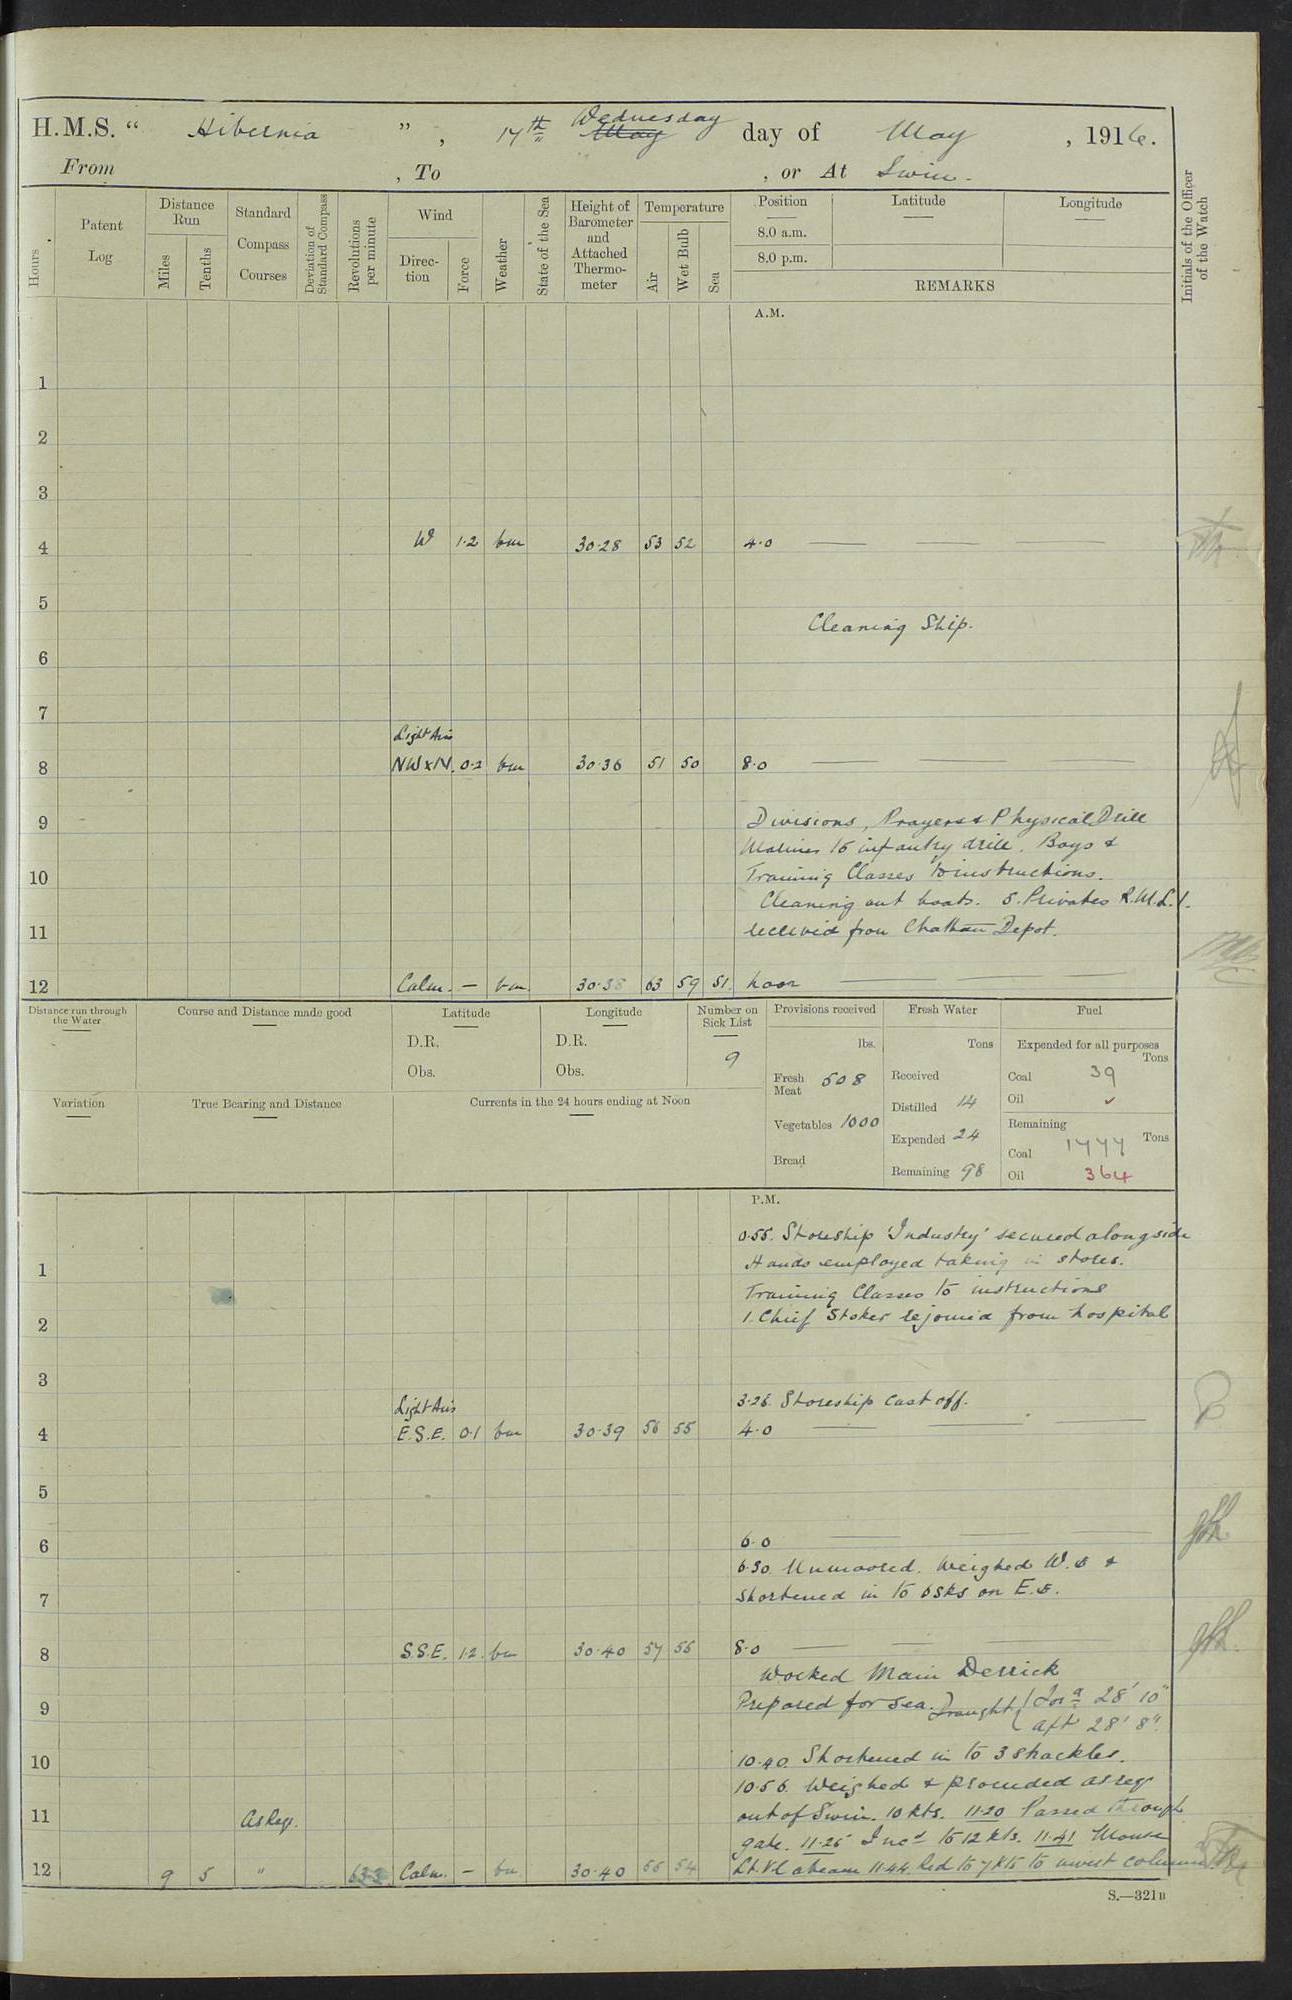 H.M.S. “ Hibernia ” , 17th Wednesday May day of May , 1916.
From , To , or At Swin.
Hours
Patent Log
Distance Run
Miles
Tenths
Standard Compass Courses
Deviation of Standard Compass
Revolutions per minute
Wind
Direction
Force
Weather
State of the Sea
Height of Barometer and Attached Thermometer
Temperature
Air
Wet Bulb
Sea
Position
8.0 a.m.
8.0 p.m.
Latitude
Longitude
REMARKS
Initials of the Officer of the Watch
A.M.
1
2
3
4 W 1·2 bm 30·28 53 52 4·0
5
Cleaning Ship.
6
7
Light Airs
8 NW x N. 0·2 bm 30·36 51 50 8·0
9 Divisions, Prayers & Physical Drill
Marines to infantry drill. Boys &
10 Training Classes to instructions.
Cleaning out boats. 5. Privates R.M.L.I.
11 received from Chatham Depot.
12 Calm. — bm 30·38 63 59 51. noon
Distance run through the Water
Course and Distance made good
Latitude
D.R.
Obs.
Longitude
D.R.
Obs.
Number on Sick List
9
Provisions received
lbs.
Fresh Meat 508
Vegetables 1000
Bread
Fresh Water
Tons
Received
Distilled 14
Expended 24
Remaining 98
Fuel
Expended for all purposes
Tons
Coal 39
Oil ✓
Remaining
Tons
Coal 1777
Oil 364
Variation
True Bearing and Distance
Currents in the 24 hours ending at Noon
P.M.
0·55. Storeship 'Industry' secured alongside
1 Hands employed taking in stores.
Training Classes to instructions
2 1. Chief Stoker rejoined from hospital
3
Light Airs 3·26. Storeship cast off.
4 E.S.E. 0·1 bm 30·39 56 55 4·0
5
6 6·0
6·30. Unmoored. Weighed W. &
7 shortened in to 6 sks on E.
8 S.S.E. 1·2 bm 30·40 57 56 8·0
Worked Main Derrick
9 Prepared for sea. Draught { For'd 28' 10"
aft 28' 8".
10 10·40. Shortened in to 3 shackles.
10·56. Weighed & proceeded as req
11 As Req. out of Swin. 10 kts. 11·20 Passed through
gate. 11·25 Inc'd to 12 kts. 11·41 Mouse
12 9 5 " 63·3 Calm. — bm 30·40 56 54 Lt. Vl abeam 11·44 Red to 7 kts to invest column
S.—321B